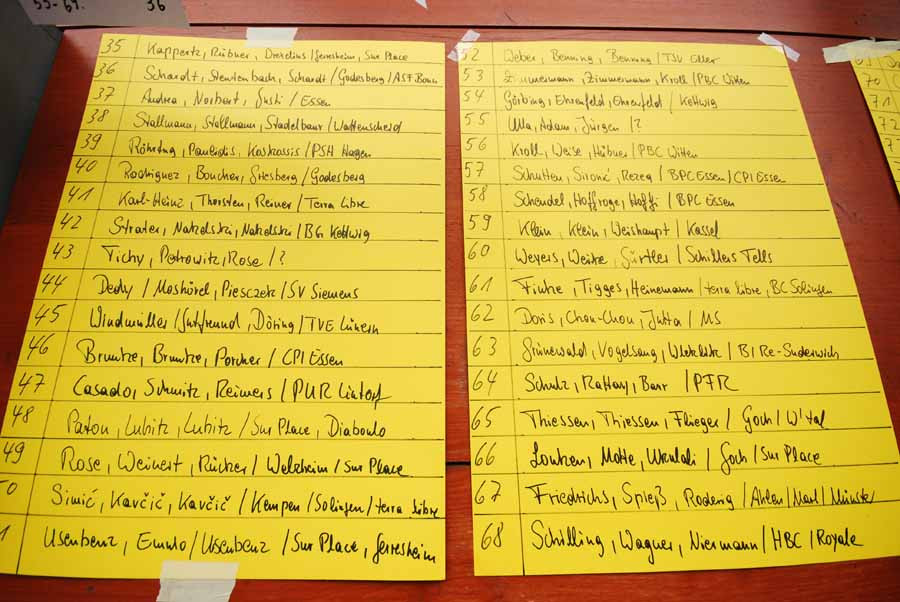 53-69. 36
35 Kappertz, Rübner, Drexelius / Gerresheim, Sur Place
36 Schardt, Stentenbach, Schardt / Godesberg / AST. Bonn
37 Andrea, Norbert, Susi / Essen
38 Stallmann, Stallmann, Stadelbaur / Wattenscheid
39 Röhring, Pavlidis, Kastrossis / PSH Hagen
40 Rodriguez, Boucher, Griesberg / Godesberg
41 Karl-Heinz, Thorsten, Reiner / Terra Libre
42 Straten, Natzelski, Natzelski / BG Kettwig
43 Tichy, Petrowitz, Rose / ?
44 Dedy / Moshövel, Piesczek / SV Siemens
45 Windmüller / Gutfreund, Döring / TVE Lünern
46 Bruntze, Bruntze, Porcher / CPI Essen
47 Casado, Schmitz, Reimers / PUR Lintorf
48 Paton, Lubitz, Lubitz / Sur Place, Diabolo
49 Rose, Weinert, Rücker / Welzheim / Sur Place
0 Simić, Kavčič, Kavčič / Kempen / Solingen / terra libre
1 Usenbenz, Emulo / Usenbenz / Sur Place, Gerresheim
52 Weber, Benning, Benning / TSV Eller
53 Zimmermann, Zimmermann, Kroll / PBC Witten
54 Görbing, Ehrenfeld, Ehrenfeld / Kettwig
55 Ulla, Adam, Jürgen / ?
56 Kroll, Weise, Hübner / PBC Witten
57 Schutten, Sironić, Rezeg / BPC Essen / CPI Essen
58 Schendel, Hoffroge, Hoffi / BPC Essen
59 Klein, Klein, Weishaupt / Kassel
60 Weyers, Weitze, Gürtler / Schillers Tells
61 Finke, Tigges, Heinemann / terra libre, BC Solingen
62 Doris, Chou-Chou, Jutta / MS
63 Grünewald, Vogelsang, / BI Re-Suderwich
64 Schulz, Rattay, Barr / PFR
65 Thiessen, Thiessen, Flieger / Goch / W'tal
66 Lonken, Motte, / Goch / Sur Place
67 Friedrichs, Spieß, Roderig / Ahlen / Marl / Münster
68 Schilling, Wagner, Niermann / HBC / Royale
69
70
71
72
7